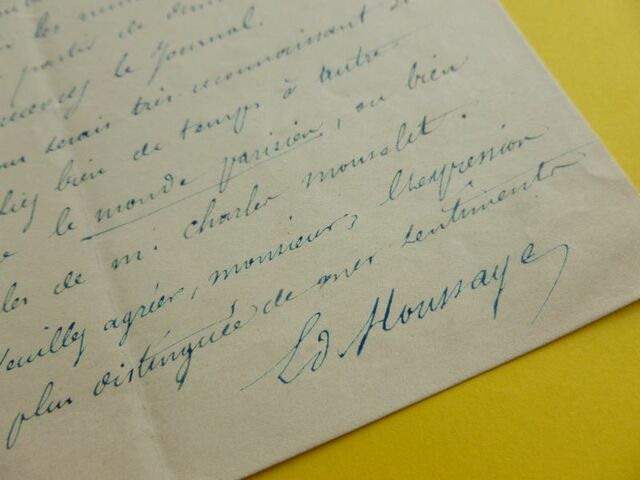 partir de
le Journal.
serais très reconnaissant
bien de temps à autre
le monde parisien, ou bien
de m. charles monselet.
Veuillez agréer, monsieur, l'expression
plus distinguée de mes sentiments
Ed Houssaye